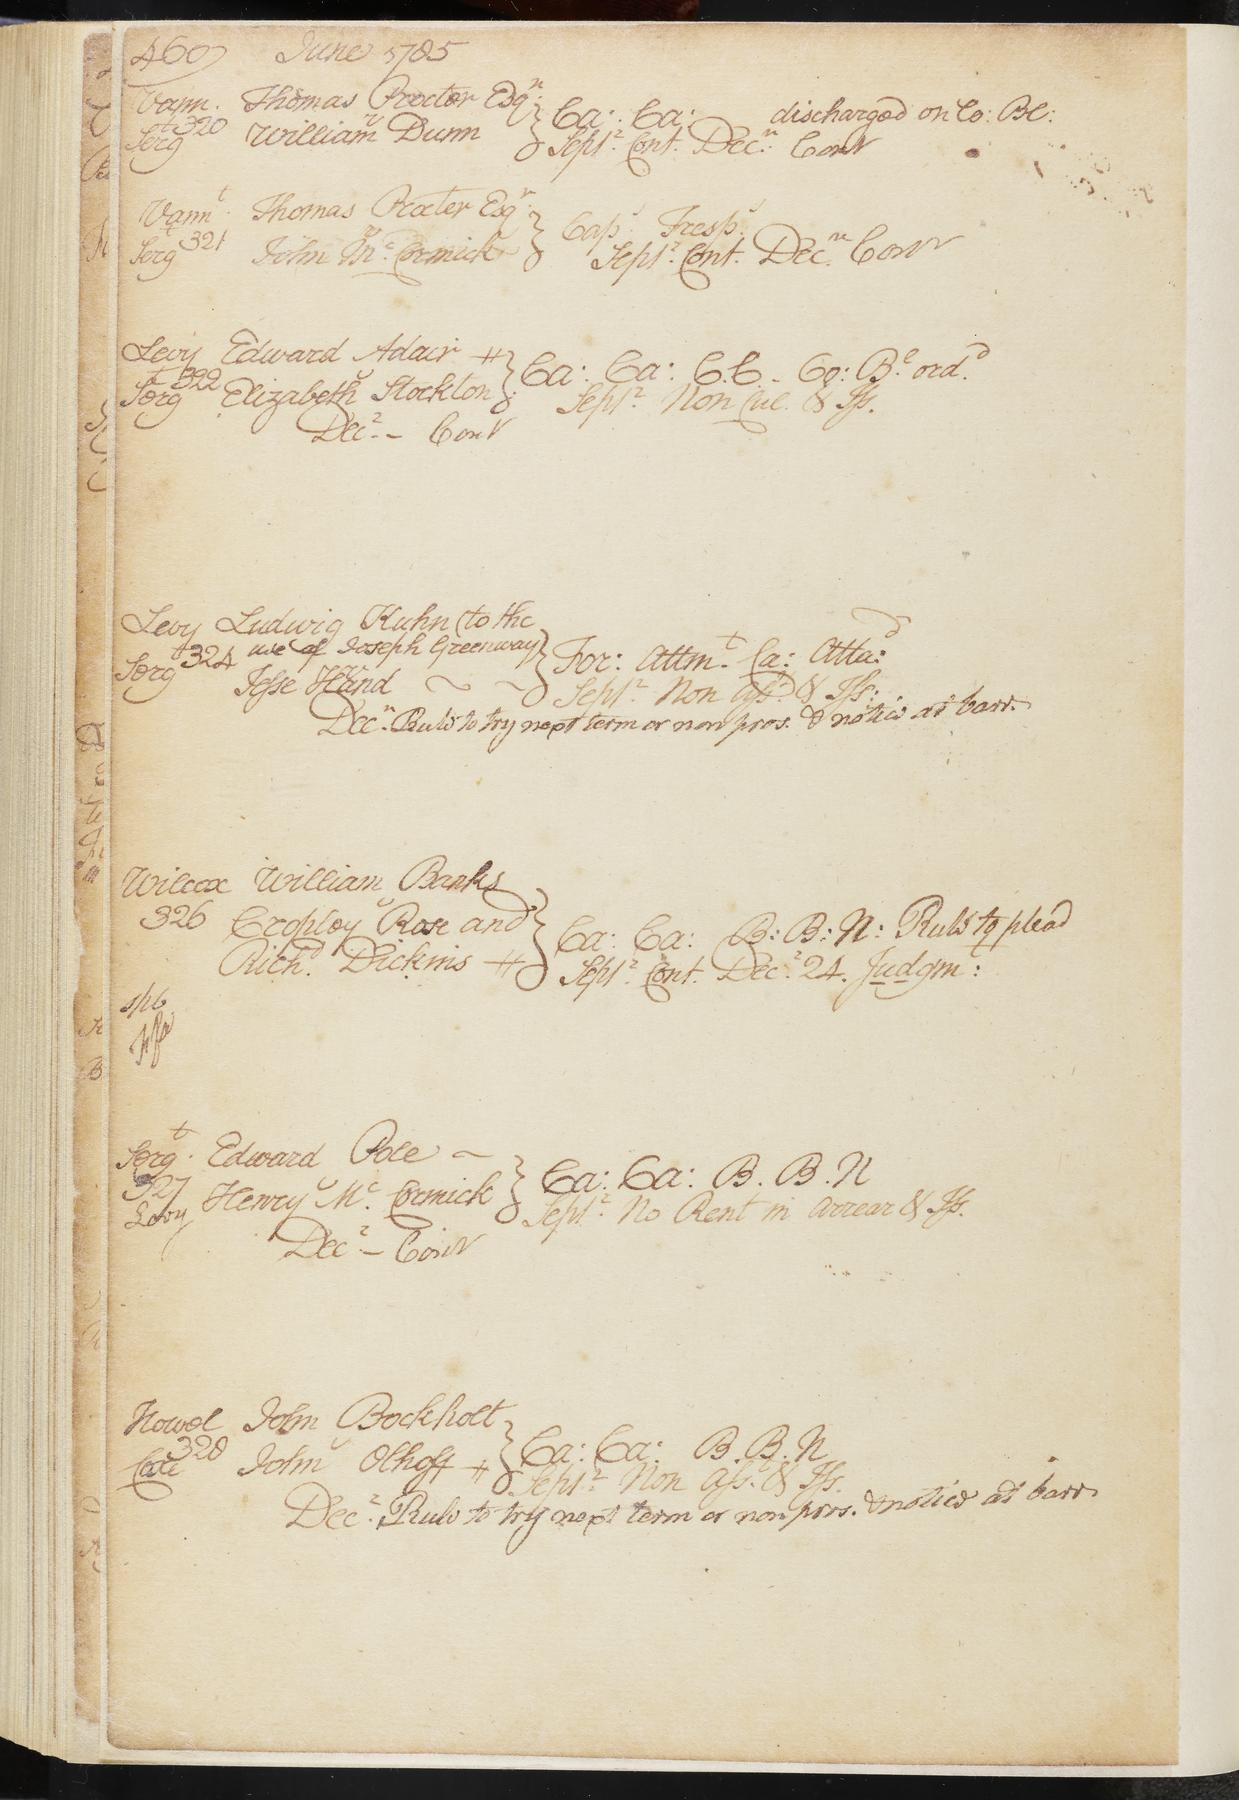 460 June 1785
Vann. Thomas Proctor Esqr.
Sergt 320 William Dunn } Ca: Ca: discharged on Co: Bl:
Sept. Cont. Decr. Cont
Vannt. Thomas Procter Esqr.
Sergt 321 John Mc. Cormick } Cap. Tresp.
Sept. Cont. Decr. Cont
Levy Edward Adair
Sergt 322 Elizabeth Stockton } Ca: Ca: C.C. - Co: Bl. ord.d
Sept. Non Cul. & Iss.
Dec. - Cont
Levy Ludwig Kuhn (to the
Sergt 324 use of Joseph Greenway } For: Attmt. Ca: Attad:
Jesse Hand Sept. Non Ass. & Iss:
Decr. Rule to try next term or non pros. & notice at barr.
Wilcox William Banks
326 Cropley Rose and
Richd. Dickins } Ca: Ca: B: B: N: Rule to plead
Sept. Cont. Dec. 24. Judgmt:
Sergt. Edward Pole
327 Henry Mc. Cormick } Ca: Ca: B. B. N
Levy Sept. No Rent in arrear & Iss.
Dec. - Cont
Howel John Bockholt
328 John Olhoff } Ca: Ca: B. B. N
Coxe Sept. Non Ass. & Iss.
Dec. Rule to try next term or non pros. & notice at barr